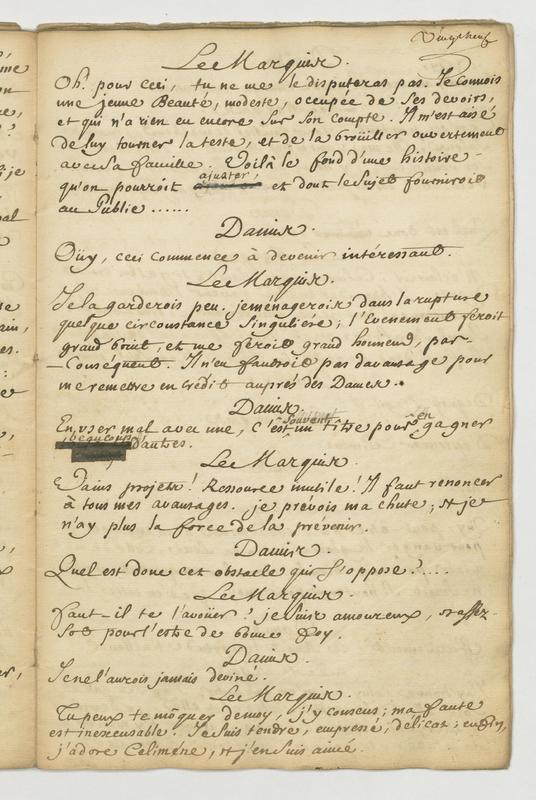 Vingtneuf
Le Marquis.
Oh! pour ceci, tu ne me le disputeras pas. Je connois
une jeune Beauté, modeste, occupée de ses devoirs,
et qui n'a rien eu encore sur son compte. Il m'est aisé
de luy tourner la teste, et de la broüiller ouvertement
avec sa famille. Voilà le fond d'une histoire
ajuster,
qu'on pourroit et dont le sujet fourniroit
au Public ......
Damis.
Oüy, ceci commence à devenir intéressant.
Le Marquis.
Je la garderois peu. je ménagerois dans la rupture
quelque circonstance singuliére; l'Evenement feroit
grand bruit, et me feroit grand honneur, par
Conséquent. Il n'en faudroit pas davantage pour
me remettre en crédit auprés des Dames..
Damis.
souvent en
En user mal avec une, c'est un titre pour gagner
beaucoup d'autres.
Le Marquis.
Vains projets! Ressource inutile! Il faut renoncer
à tous mes avantages. je prévois ma chute; et je
n'ay plus la force de la prévenir.
Damis.
Quel est donc cet obstacle qui s'oppose?....
Le Marquis.
Faut-il te l'avoüer? je suis amoureux, et assez
Sot pour l'estre de bonne foy.
Damis.
Je ne l'aurois jamais deviné.
Le Marquis.
Tu peux te môquer de moy, j'y consens; ma faute
est inexcusable. Je suis tendre, empressé, délicat; enfin,
j'adore Celiméne, et j'en suis aimé.